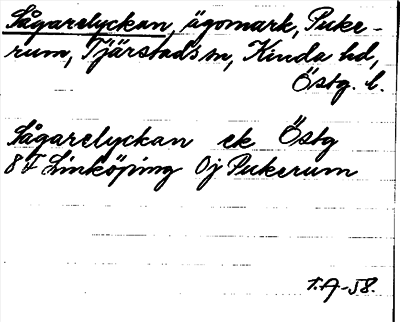 Sågarelyckan, ägomark, Puke-
rum, Tjärstads sn, Kinda hd,
Östg. l.
Sågarelyckan ek Östg
8 F Linköping 0j Pukerum
T.A-58.